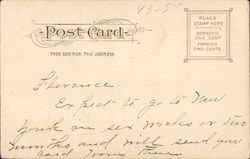 43-5
Post Card
THIS SIDE FOR THE ADDRESS
PLACE
STAMP HERE
DOMESTIC
ONE CENT
FOREIGN
TWO CENTS
Florence.
Expect to go to New
York in six weeks or two
months and will send you
card from there